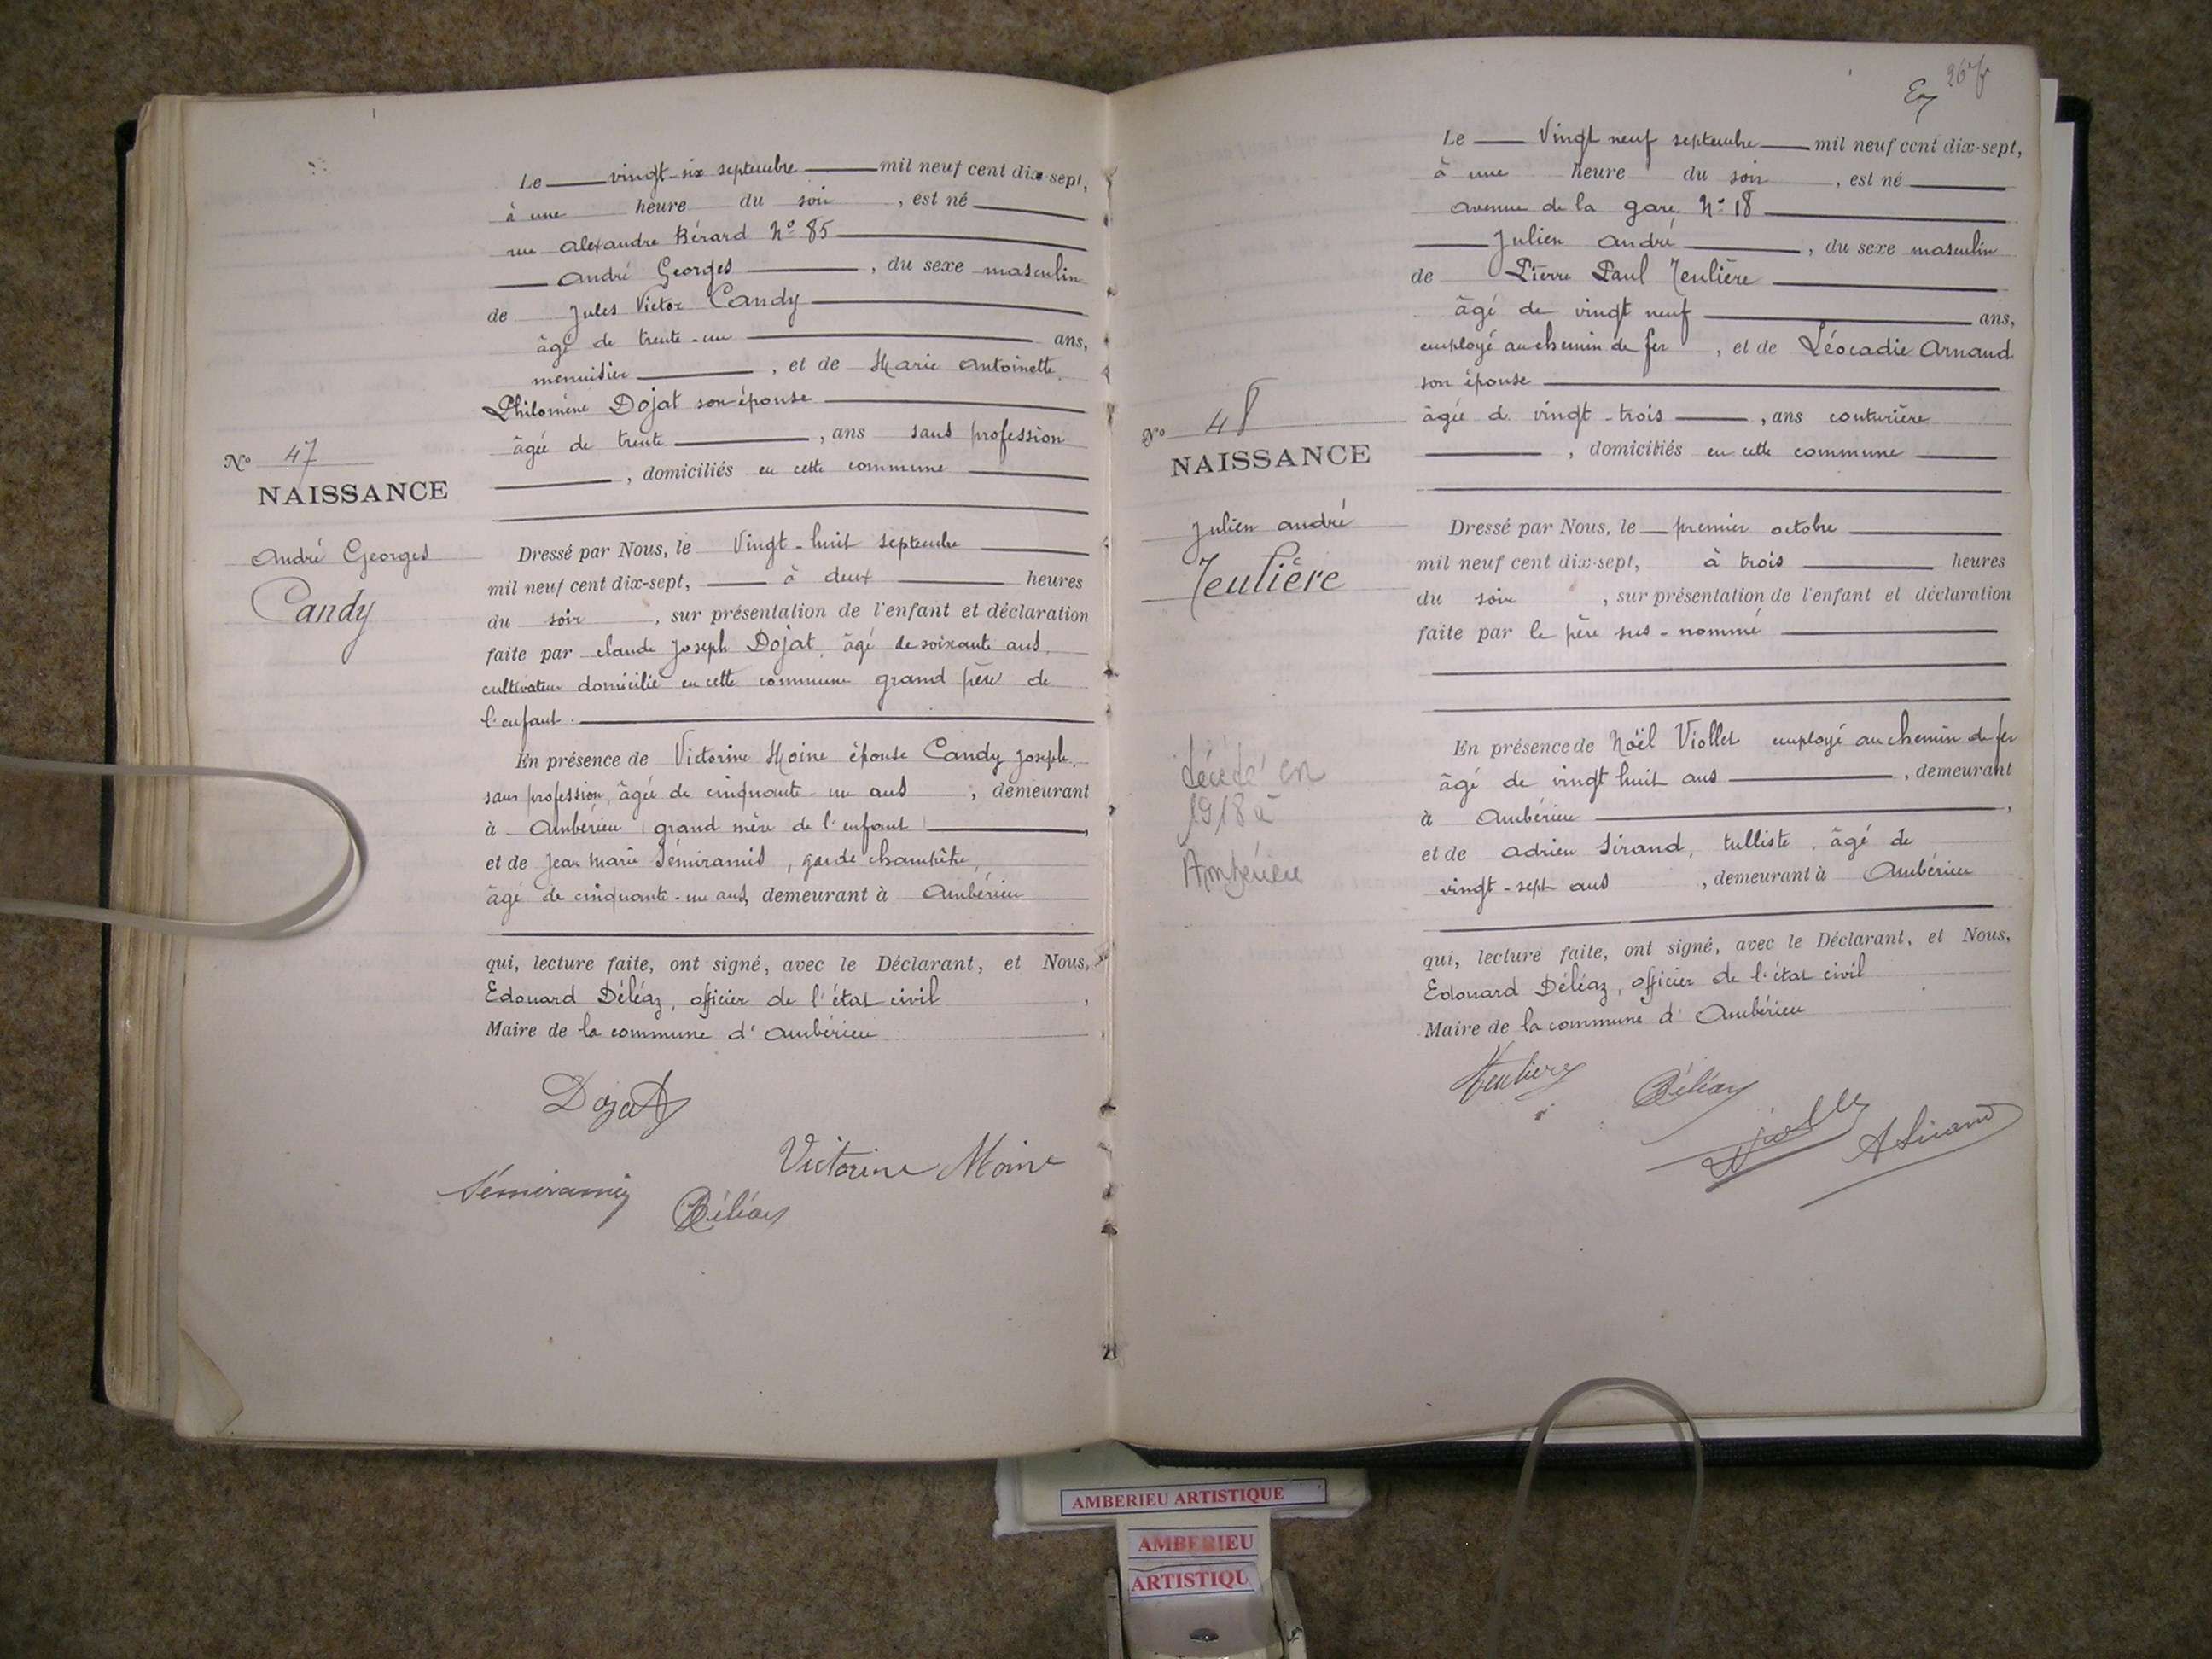 Le vingt-six septembre mil neuf cent dix-sept,
à une heure du soir, est né
rue Alexandre Bérard N° 85
André Georges, du sexe masculin
de Jules Victor Candy
âgé de trente-un ans,
menuisier, et de Marie Antoinette
Philomène Dojat son épouse
âgée de trente, ans sans profession
, domiciliés en cette commune
N° 47
NAISSANCE
André Georges
Candy
Dressé par Nous, le Vingt-huit septembre
mil neuf cent dix-sept, à deux heures
du soir, sur présentation de l'enfant et déclaration
faite par Claude Joseph Dojat, âgé de soixante ans,
cultivateur domicilié en cette commune grand père de
l'enfant.
En présence de Victorine Moine épouse Candy Joseph,
sans profession, âgée de cinquante-un ans, demeurant
à Ambérieu grand mère de l'enfant,
et de Jean Marie Sémiramis, garde champêtre,
âgé de cinquante-un ans, demeurant à Ambérieu
qui, lecture faite, ont signé, avec le Déclarant, et Nous,
Edouard Déléaz, officier de l'état civil,
Maire de la commune d'Ambérieu
Dojat
Victorine Moine
Sémiramis
Déléaz
26
Le Vingt neuf septembre mil neuf cent dix-sept,
à une heure du soir, est né
avenue de la gare N° 18
Julien André, du sexe masculin
de Pierre Paul Teulière
âgé de vingt neuf ans,
employé au chemin de fer, et de Léocadie Arnaud
son épouse
âgée d vingt-trois, ans couturière
, domiciliés en cette commune
N° 48
NAISSANCE
Julien André
Teulière
Décédé en
1918 à
Ambérieu
Dressé par Nous, le premier octobre
mil neuf cent dix-sept, à trois heures
du soir, sur présentation de l'enfant et déclaration
faite par le père sus-nommé
En présence de Noël Viollet employé au chemin de fer
âgé de vingt huit ans, demeurant
à Ambérieu,
et de Adrien Sirand, tulliste, âgé de
vingt-sept ans, demeurant à Ambérieu
qui, lecture faite, ont signé, avec le Déclarant, et Nous,
Edouard Déléaz, officier de l'état civil
Maire de la commune d'Ambérieu
Teulière
Déléaz
A Sirand
AMBERIEU ARTISTIQUE
AMBERIEU
ARTISTIQU